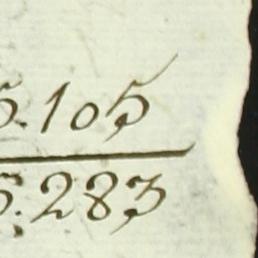 5.105
5.283